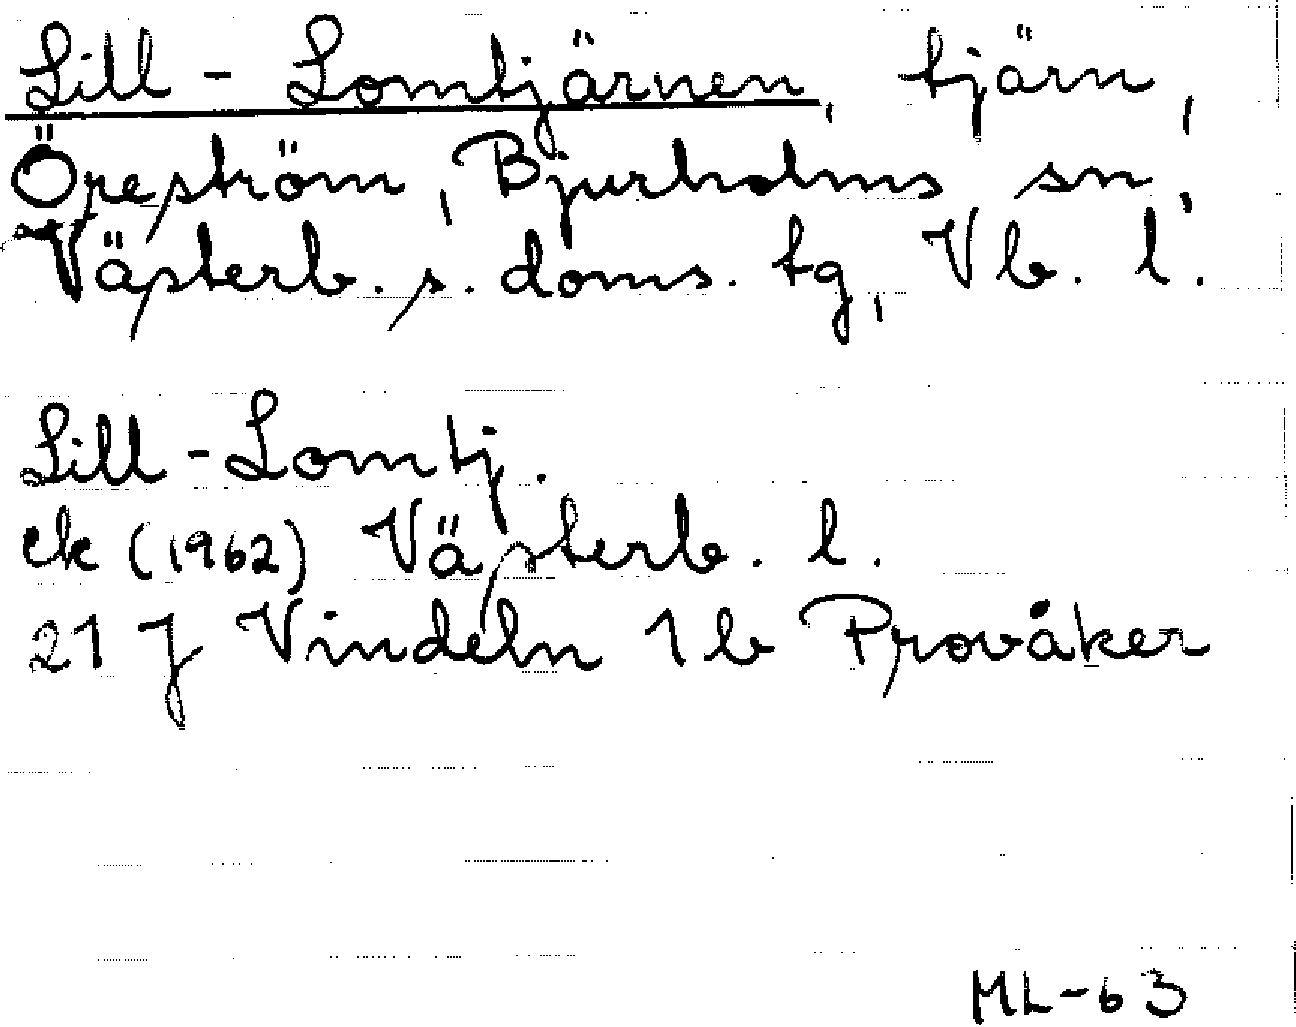 Lill-Lomtjärnen, tjärn,
Öreström, Bjurholms sn,
Västerb. s. doms. tg, Vb. l.
Lill-Lomtj.
ek (1962) Västerb. l.
21 J Vindeln 1 b Provåker
ML-63